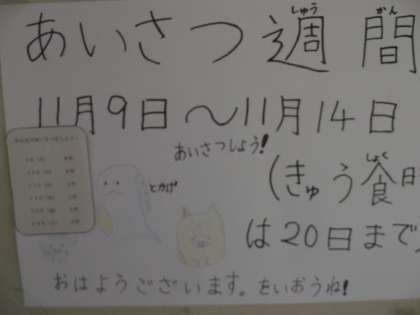 あいさつ週間
しゅう かん
11月9日〜11月14日
あいさつしよう!
とかげ
(きゅう食
しょく
は20日まで
おはようございます。をいおうね!